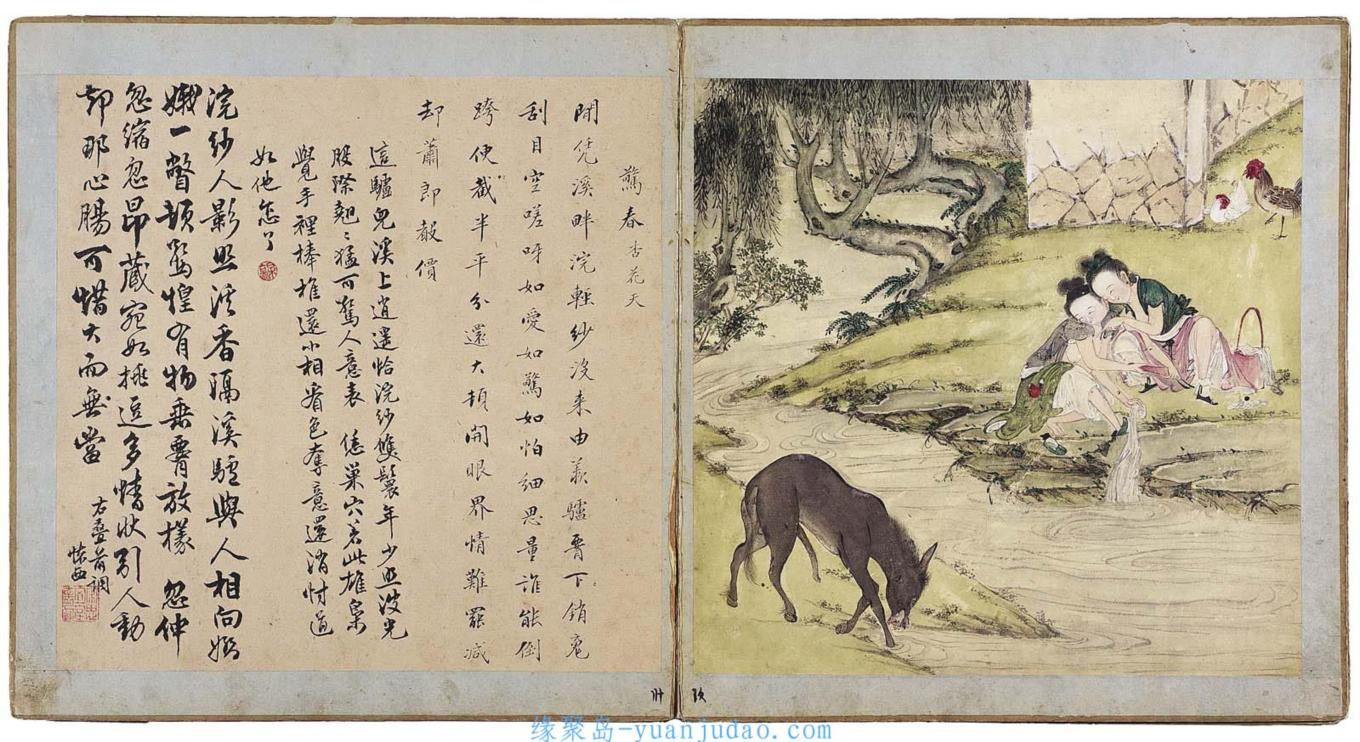 驚春 杏花天
閒凭溪畔浣輕紗没来由驢下銷魂
刮目空嗟呀如愛如驚如怕細思量誰能倒
跨便截半平分還大頓開眼界情難罷减
却蕭郎聲價
這驢兒溪上逍遥恰浣紗雙鬟年少照波光
股際翹〻猛可驚人意表 恁巢穴若此雄梟
覺手裡棒椎還小相看色奪意還消忖道
如他怎了
浣紗人影照溪香隔溪驢與人相向嬌
娥一瞥頓驚惶有物垂放樣 忽伸
忽縮忽昂藏宛如挑逗多情狀引人動
却那心腸可惜大而無當
右叠前調
懷西
缘聚岛-yuanjudao.com